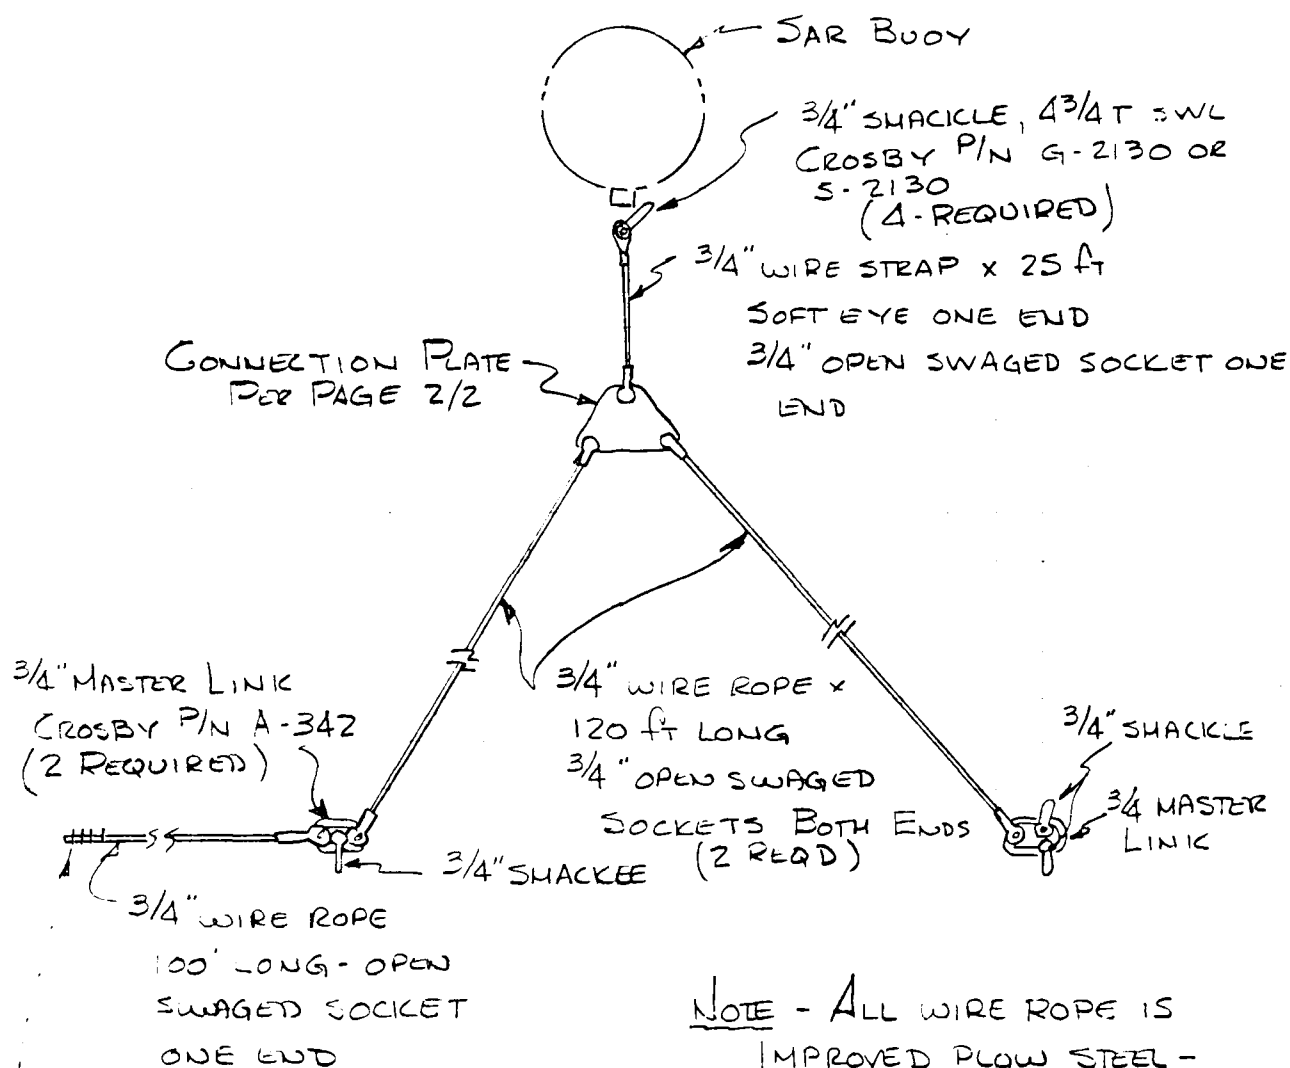 SAR BUOY
3/4" SHACKLE, 4 3/4 T SWL
CROSBY P/N G-2130 OR
S-2130
(4-REQUIRED)
3/4" WIRE STRAP x 25 ft
SOFT EYE ONE END
3/4" OPEN SWAGED SOCKET ONE
END
CONNECTION PLATE
PER PAGE 2/2
3/4" MASTER LINK
CROSBY P/N A-342
(2 REQUIRED)
3/4" WIRE ROPE x
120 ft LONG
3/4" OPEN SWAGED
SOCKETS BOTH ENDS
(2 REQD)
3/4" SHACKLE
3/4 MASTER
LINK
3/4" SHACKLE
3/4" WIRE ROPE
100' LONG - OPEN
SWAGED SOCKET
ONE END
NOTE - ALL WIRE ROPE IS
IMPROVED PLOW STEEL -